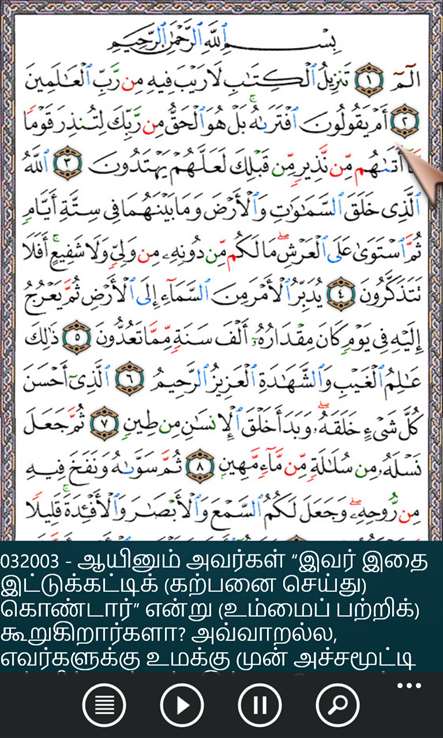 بِسْمِ ٱللَّهِ ٱلرَّحْمَٰنِ ٱلرَّحِيمِ
الٓمٓ ١ تَنزِيلُ ٱلْكِتَٰبِ لَا رَيْبَ فِيهِ مِن رَّبِّ ٱلْعَٰلَمِينَ
٢ أَمْ يَقُولُونَ ٱفْتَرَىٰهُ ۚ بَلْ هُوَ ٱلْحَقُّ مِن رَّبِّكَ لِتُنذِرَ قَوْمًا
مَّآ أَتَىٰهُم مِّن نَّذِيرٍ مِّن قَبْلِكَ لَعَلَّهُمْ يَهْتَدُونَ ٣ ٱللَّهُ
ٱلَّذِى خَلَقَ ٱلسَّمَٰوَٰتِ وَٱلْأَرْضَ وَمَا بَيْنَهُمَا فِى سِتَّةِ أَيَّامٍ
ثُمَّ ٱسْتَوَىٰ عَلَى ٱلْعَرْشِ ۖ مَا لَكُم مِّن دُونِهِۦ مِن وَلِىٍّ وَلَا شَفِيعٍ ۚ أَفَلَا
تَتَذَكَّرُونَ ٤ يُدَبِّرُ ٱلْأَمْرَ مِنَ ٱلسَّمَآءِ إِلَى ٱلْأَرْضِ ثُمَّ يَعْرُجُ
إِلَيْهِ فِى يَوْمٍ كَانَ مِقْدَارُهُۥٓ أَلْفَ سَنَةٍ مِّمَّا تَعُدُّونَ ٥ ذَٰلِكَ
عَٰلِمُ ٱلْغَيْبِ وَٱلشَّهَٰدَةِ ٱلْعَزِيزُ ٱلرَّحِيمُ ٦ ٱلَّذِىٓ أَحْسَنَ
كُلَّ شَىْءٍ خَلَقَهُۥ ۖ وَبَدَأَ خَلْقَ ٱلْإِنسَٰنِ مِن طِينٍ ٧ ثُمَّ جَعَلَ
نَسْلَهُۥ مِن سُلَٰلَةٍ مِّن مَّآءٍ مَّهِينٍ ٨ ثُمَّ سَوَّىٰهُ وَنَفَخَ فِيهِ
مِن رُّوحِهِۦ ۖ وَجَعَلَ لَكُمُ ٱلسَّمْعَ وَٱلْأَبْصَٰرَ وَٱلْأَفْـِٔدَةَ ۚ قَلِيلًا
032003 - ஆயினும் அவர்கள் “இவர் இதை
இட்டுக்கட்டிக் (கற்பனை செய்து)
கொண்டார்” என்று (உம்மைப் பற்றிக்)
கூறுகிறார்களா? அவ்வாறல்ல,
எவர்களுக்கு உமக்கு முன் அச்சமூட்டி